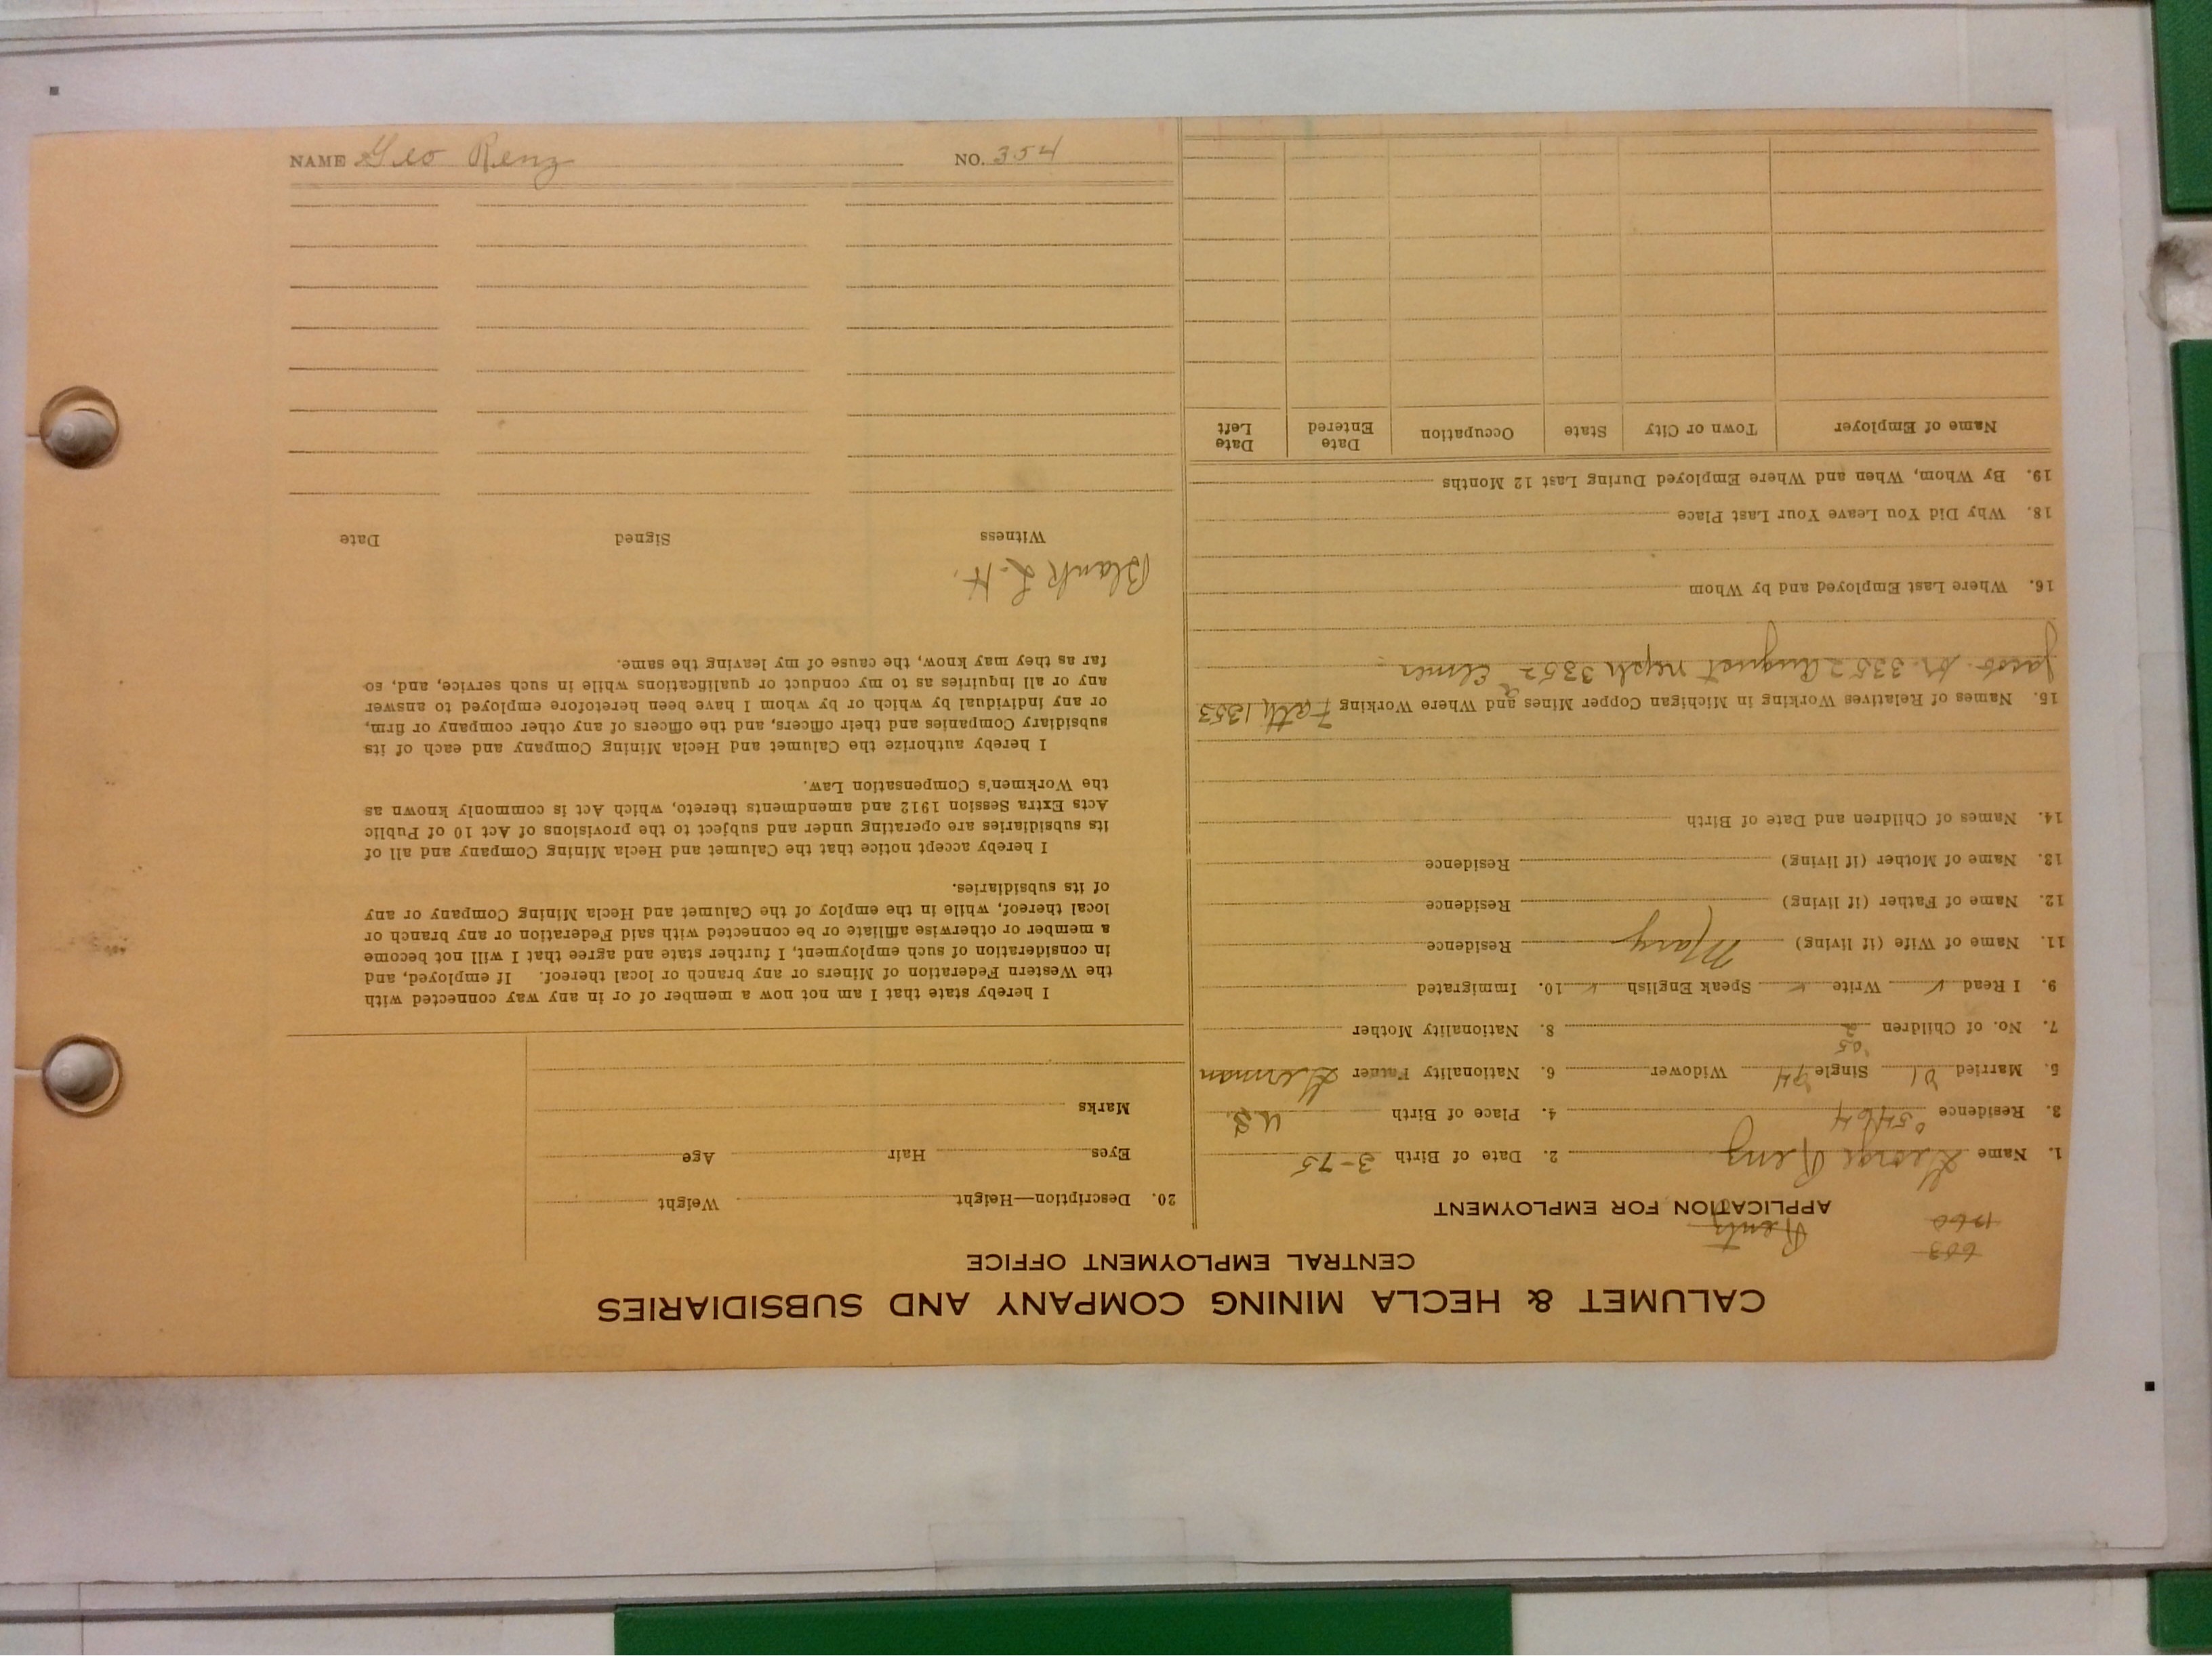 CALUMET & HECLA MINING COMPANY AND SUBSIDIARIES
CENTRAL EMPLOYMENT OFFICE
603
1260
Rentz
APPLICATION FOR EMPLOYMENT
1. Name George Renz 2. Date of Birth 3-75
3. Residence 5464 4. Place of Birth U.S.
5. Married 01 Single 24 Widower 6. Nationality Father German
05
7. No. of Children 2 8. Nationality Mother
9. I Read ✓ Write ✓ Speak English ✓ 10. Immigrated
11. Name of Wife (if living) Mary Residence
12. Name of Father (if living) Residence
13. Name of Mother (if living) Residence
14. Names of Children and Date of Birth
15. Names of Relatives Working in Michigan Copper Mines and Where Working Fath 1353
Jacob br. 3352 August neph 3352 Elmer
16. Where Last Employed and by Whom
18. Why Did You Leave Your Last Place
19. By Whom, When and Where Employed During Last 12 Months
Name of Employer Town or City State Occupation Date Entered Date Left
20. Description—Height Weight
Eyes Hair Age
Marks
I hereby state that I am not now a member of or in any way connected with
the Western Federation of Miners or any branch or local thereof. If employed, and
in consideration of such employment, I further state and agree that I will not become
a member or otherwise affiliate or be connected with said Federation or any branch or
local thereof, while in the employ of the Calumet and Hecla Mining Company or any
of its subsidiaries.
I hereby accept notice that the Calumet and Hecla Mining Company and all of
its subsidiaries are operating under and subject to the provisions of Act 10 of Public
Acts Extra Session 1912 and amendments thereto, which Act is commonly known as
the Workmen's Compensation Law.
I hereby authorize the Calumet and Hecla Mining Company and each of its
subsidiary Companies and their officers, and the officers of any other company or firm,
or any individual by which or by whom I have been heretofore employed to answer
any or all inquiries as to my conduct or qualifications while in such service, and, so
far as they may know, the cause of my leaving the same.
Blank L. H.
Witness Signed Date
NAME Geo Renz NO. 354